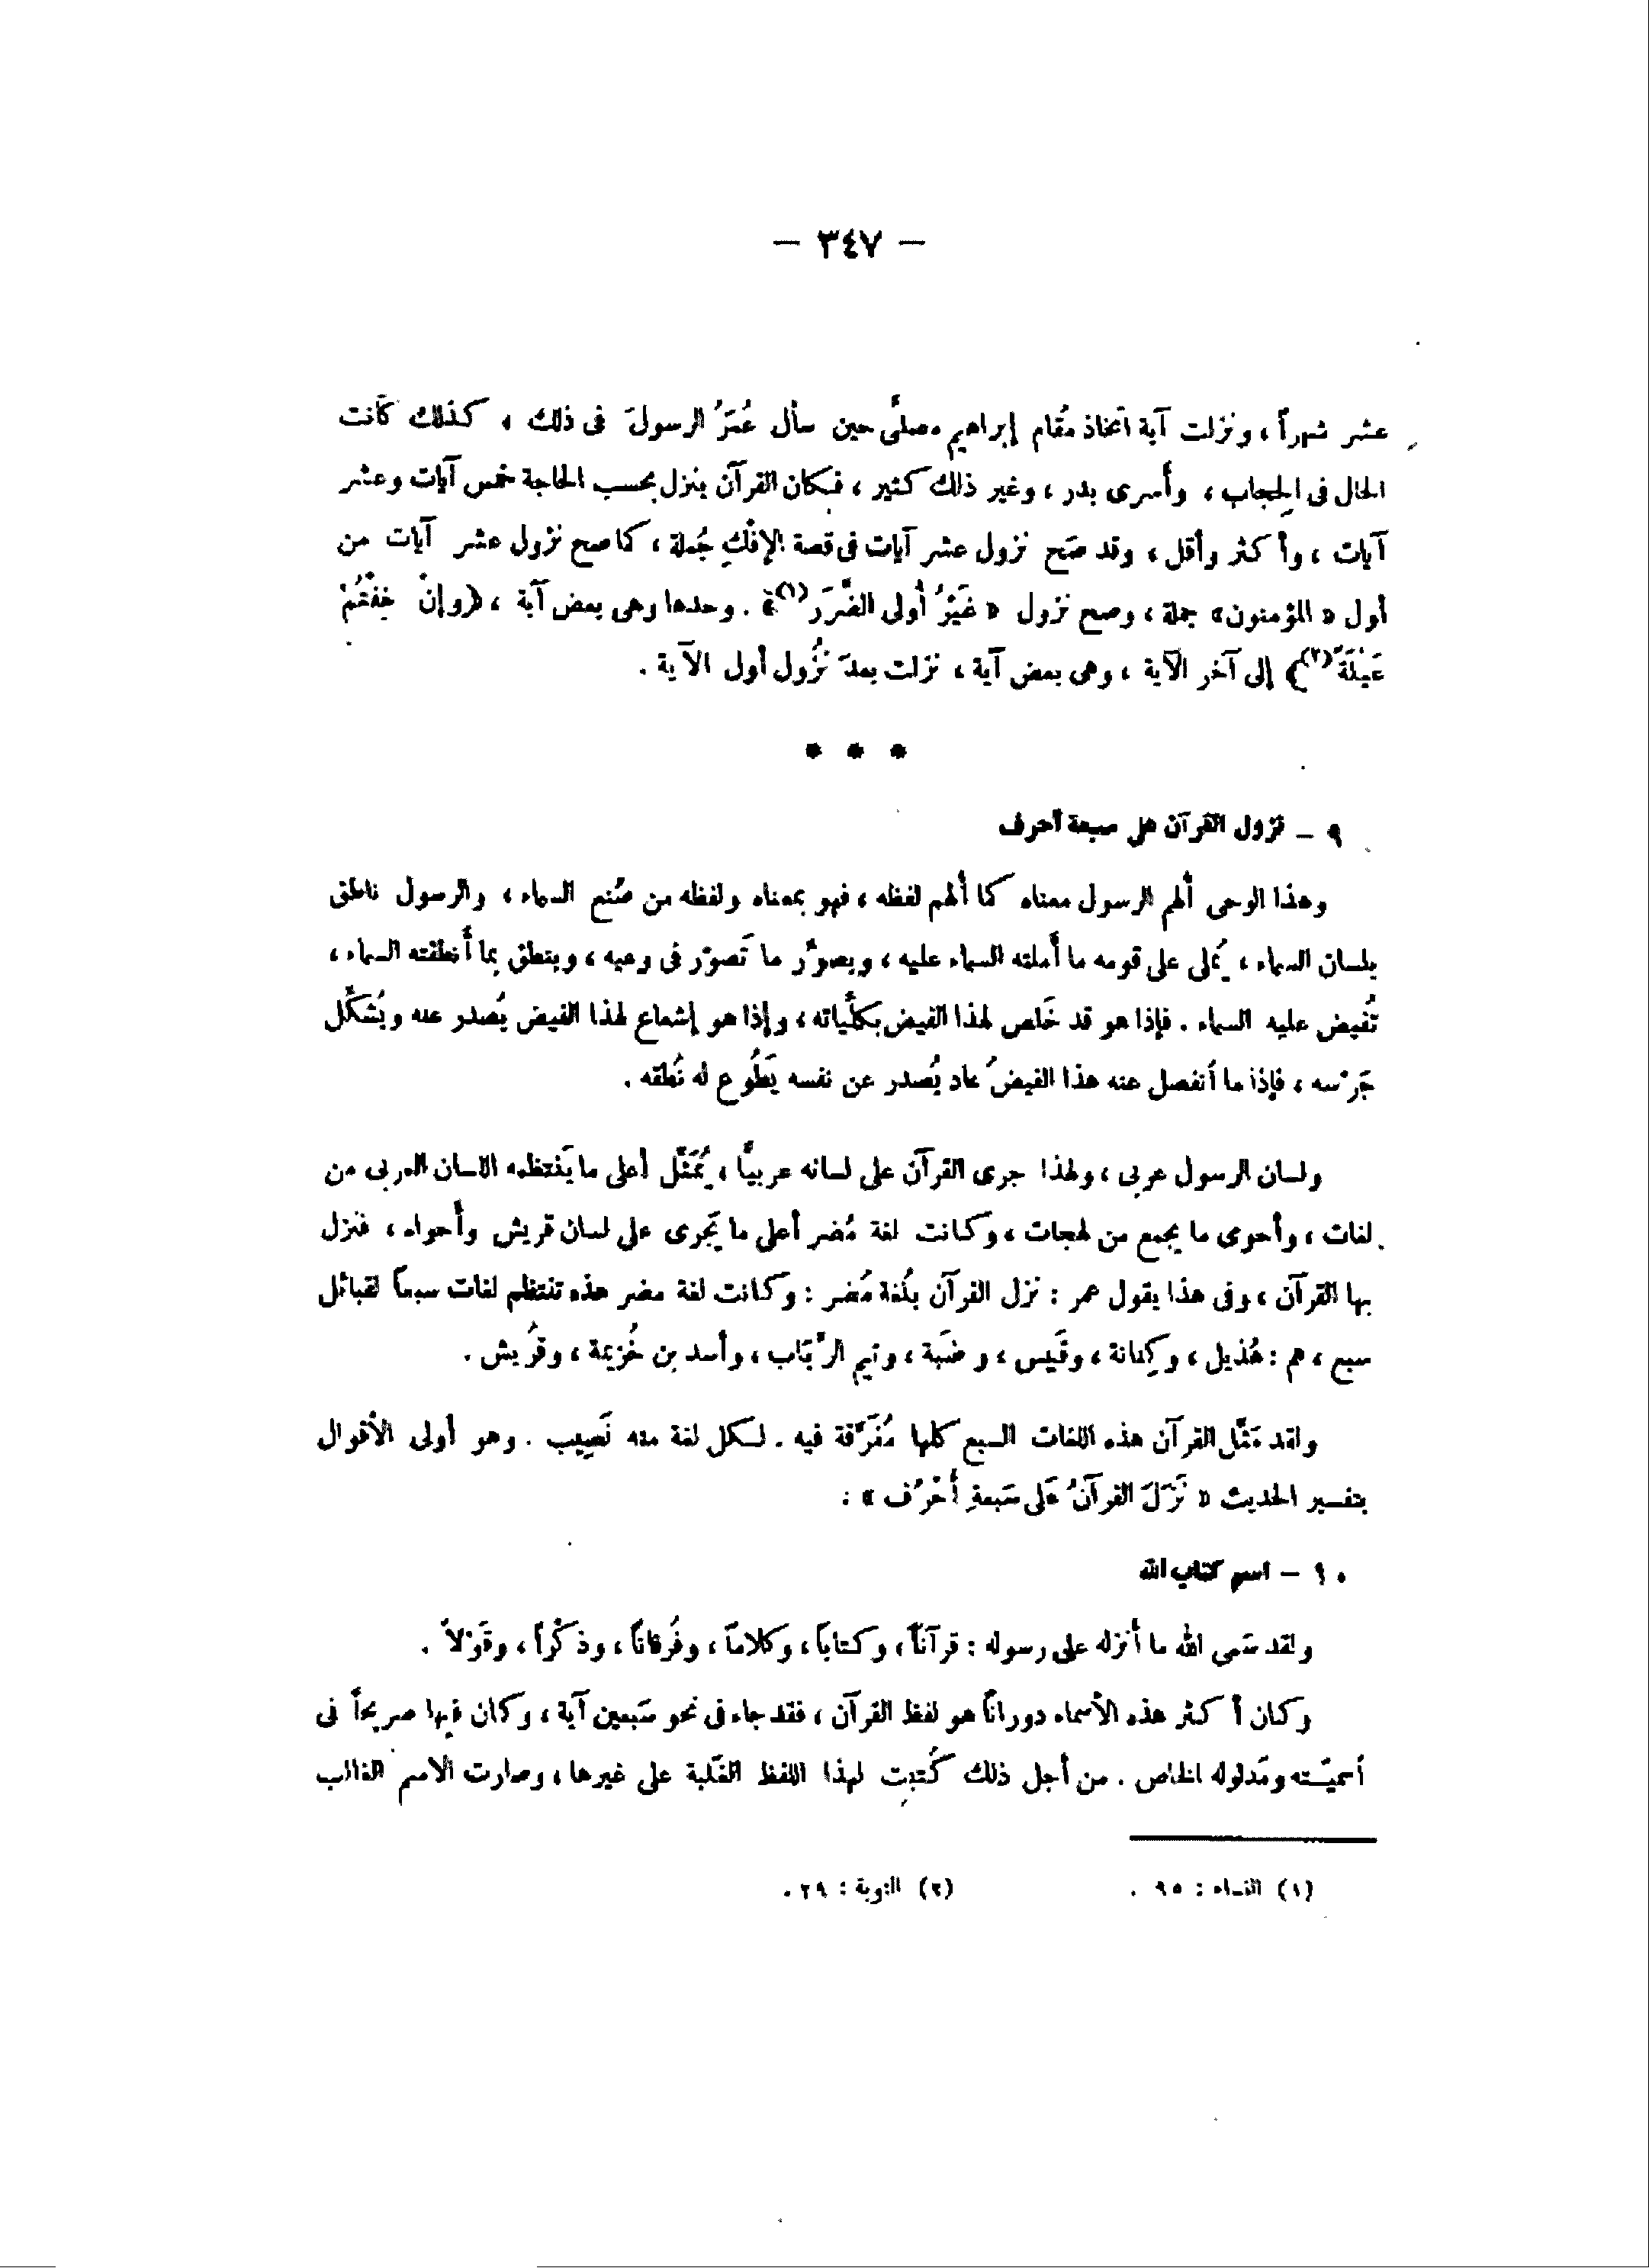 — ٣٤٧ —
عشر شهراً ، ونزلت آية اتخاذ مُقام إبراهيم مصلًّى حين سأل عُمَرُ الرسولَ فى ذلك ، كذلك كانت
الحال فى الحِجاب ، وأسرى بدر ، وغير ذلك كثير ، فكان القرآن ينزل بحسب الحاجة خمس آيات وعشر
آيات ، وأكثر وأقل ، وقد صَح نزول عشر آيات فى قصة الإفْكِ جُملة ، كما صح نزول عشر آيات من
أول « المؤمنون » جملة ، وصح نزول « غَيْرُ أُولى الضَّرَر (١)﴾ . وحدها وهى بعض آية ، ﴿وإنْ خِفْتُمْ
عَيْلَةً (٢)﴾ إلى آخر الآية ، وهى بعض آية ، نزلت بعدَ نُزُول أول الآية .
* * *
٩ – نزول القرآن على سبعة أحرف
وهذا الوحى أُلهم الرسول معناه كما أُلهم لفظه ، فهو بمعناه ولفظه من صُنع السماء ، والرسول ناطق
بلسان السماء ، يُملى على قومه ما أَملته السماء عليه ، ويصوِّر ما تَصوّر فى وعيه ، وينطق بما أَنطقته السماء ،
تُفيض عليه السماء . فإذا هو قد خَلص لهذا الفيض بكلِّياته ، وإذا هو إشعاع لهذا الفيض يُصدر عنه ويُشكِّل
جَرْسه ، فإذا ما أنفصل عنه هذا الفيضُ عاد يُصدر عن نفسه يَطُوع له نُطقه .
ولسان الرسول عربى ، ولهذا جرى القرآن على لسانه عربيًّا ، يُمَثّل أعلى ما يَنتظمه اللسان العربى من
لغات ، وأحوى ما يجمع من لهجات ، وكانت لغة مُضر أعلى ما يَجرى على لسان قريش وأَحواه ، فنزل
بها القرآن ، وفى هذا يقول عمر : نزل القرآن بلُغة مُضر : وكانت لغة مضر هذه تنتظم لغات سبعاً لقبائل
سبع ، هم : هُذيل ، وكِنانة ، وقَيس ، وضَبة ، وتيم الرِّبَاب ، وأسد بن خُزيمة ، وقُريش .
ولقد مَثّل القرآن هذه اللغات السبع كلها مُفَرَّقة فيه . لكل لغة منه نَصِيب . وهو أولى الأقوال
بتفسير الحديث « نَزَلَ القرآنُ عَلى سَبعةِ أَحْرُف » :
١٠ – اسم كتاب الله
ولقد سَمى الله ما أنزله على رسوله : قرآناً ، وكتاباً ، وكلاماً ، وفُرقاناً ، وذكْراً ، وقَوْلاً .
وكان أكثر هذه الأسماء دوراناً هو لفظ القرآن ، فقد جاء فى نحو سَبعين آية ، وكان فيها صريحاً فى
أسميّته ومَدلوله الخاص . من أجل ذلك كُتبت لهذا اللفظ الغَلبة على غيرها ، وصارت الاسم الغالب
(١) النساء : ٩٥ .
(٢) التوبة : ٢٩ .